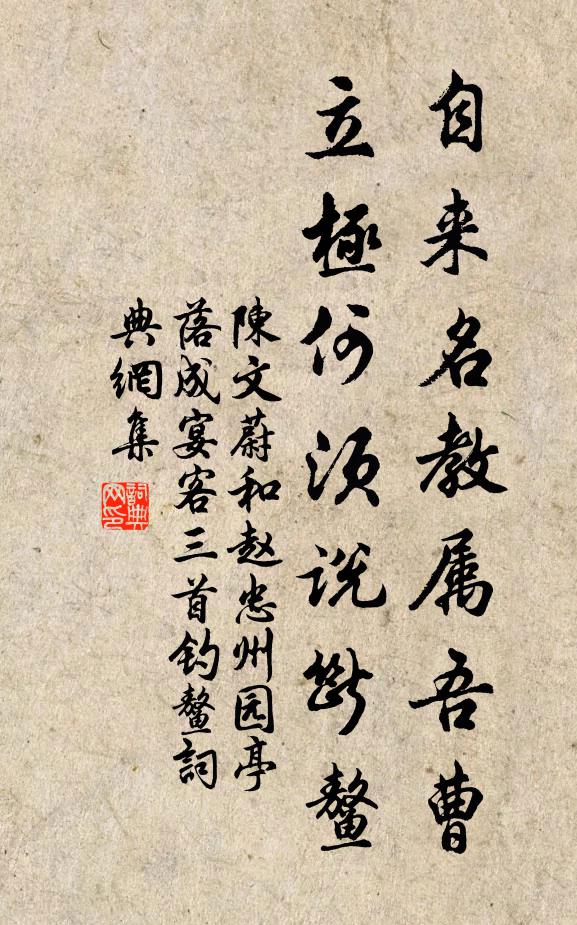 自来名教属吾曹
立極何须説斷鳌
陳文蔚和赵忠州园亭
落成宴客三首钓鳌詞
典網集
詞典
网印